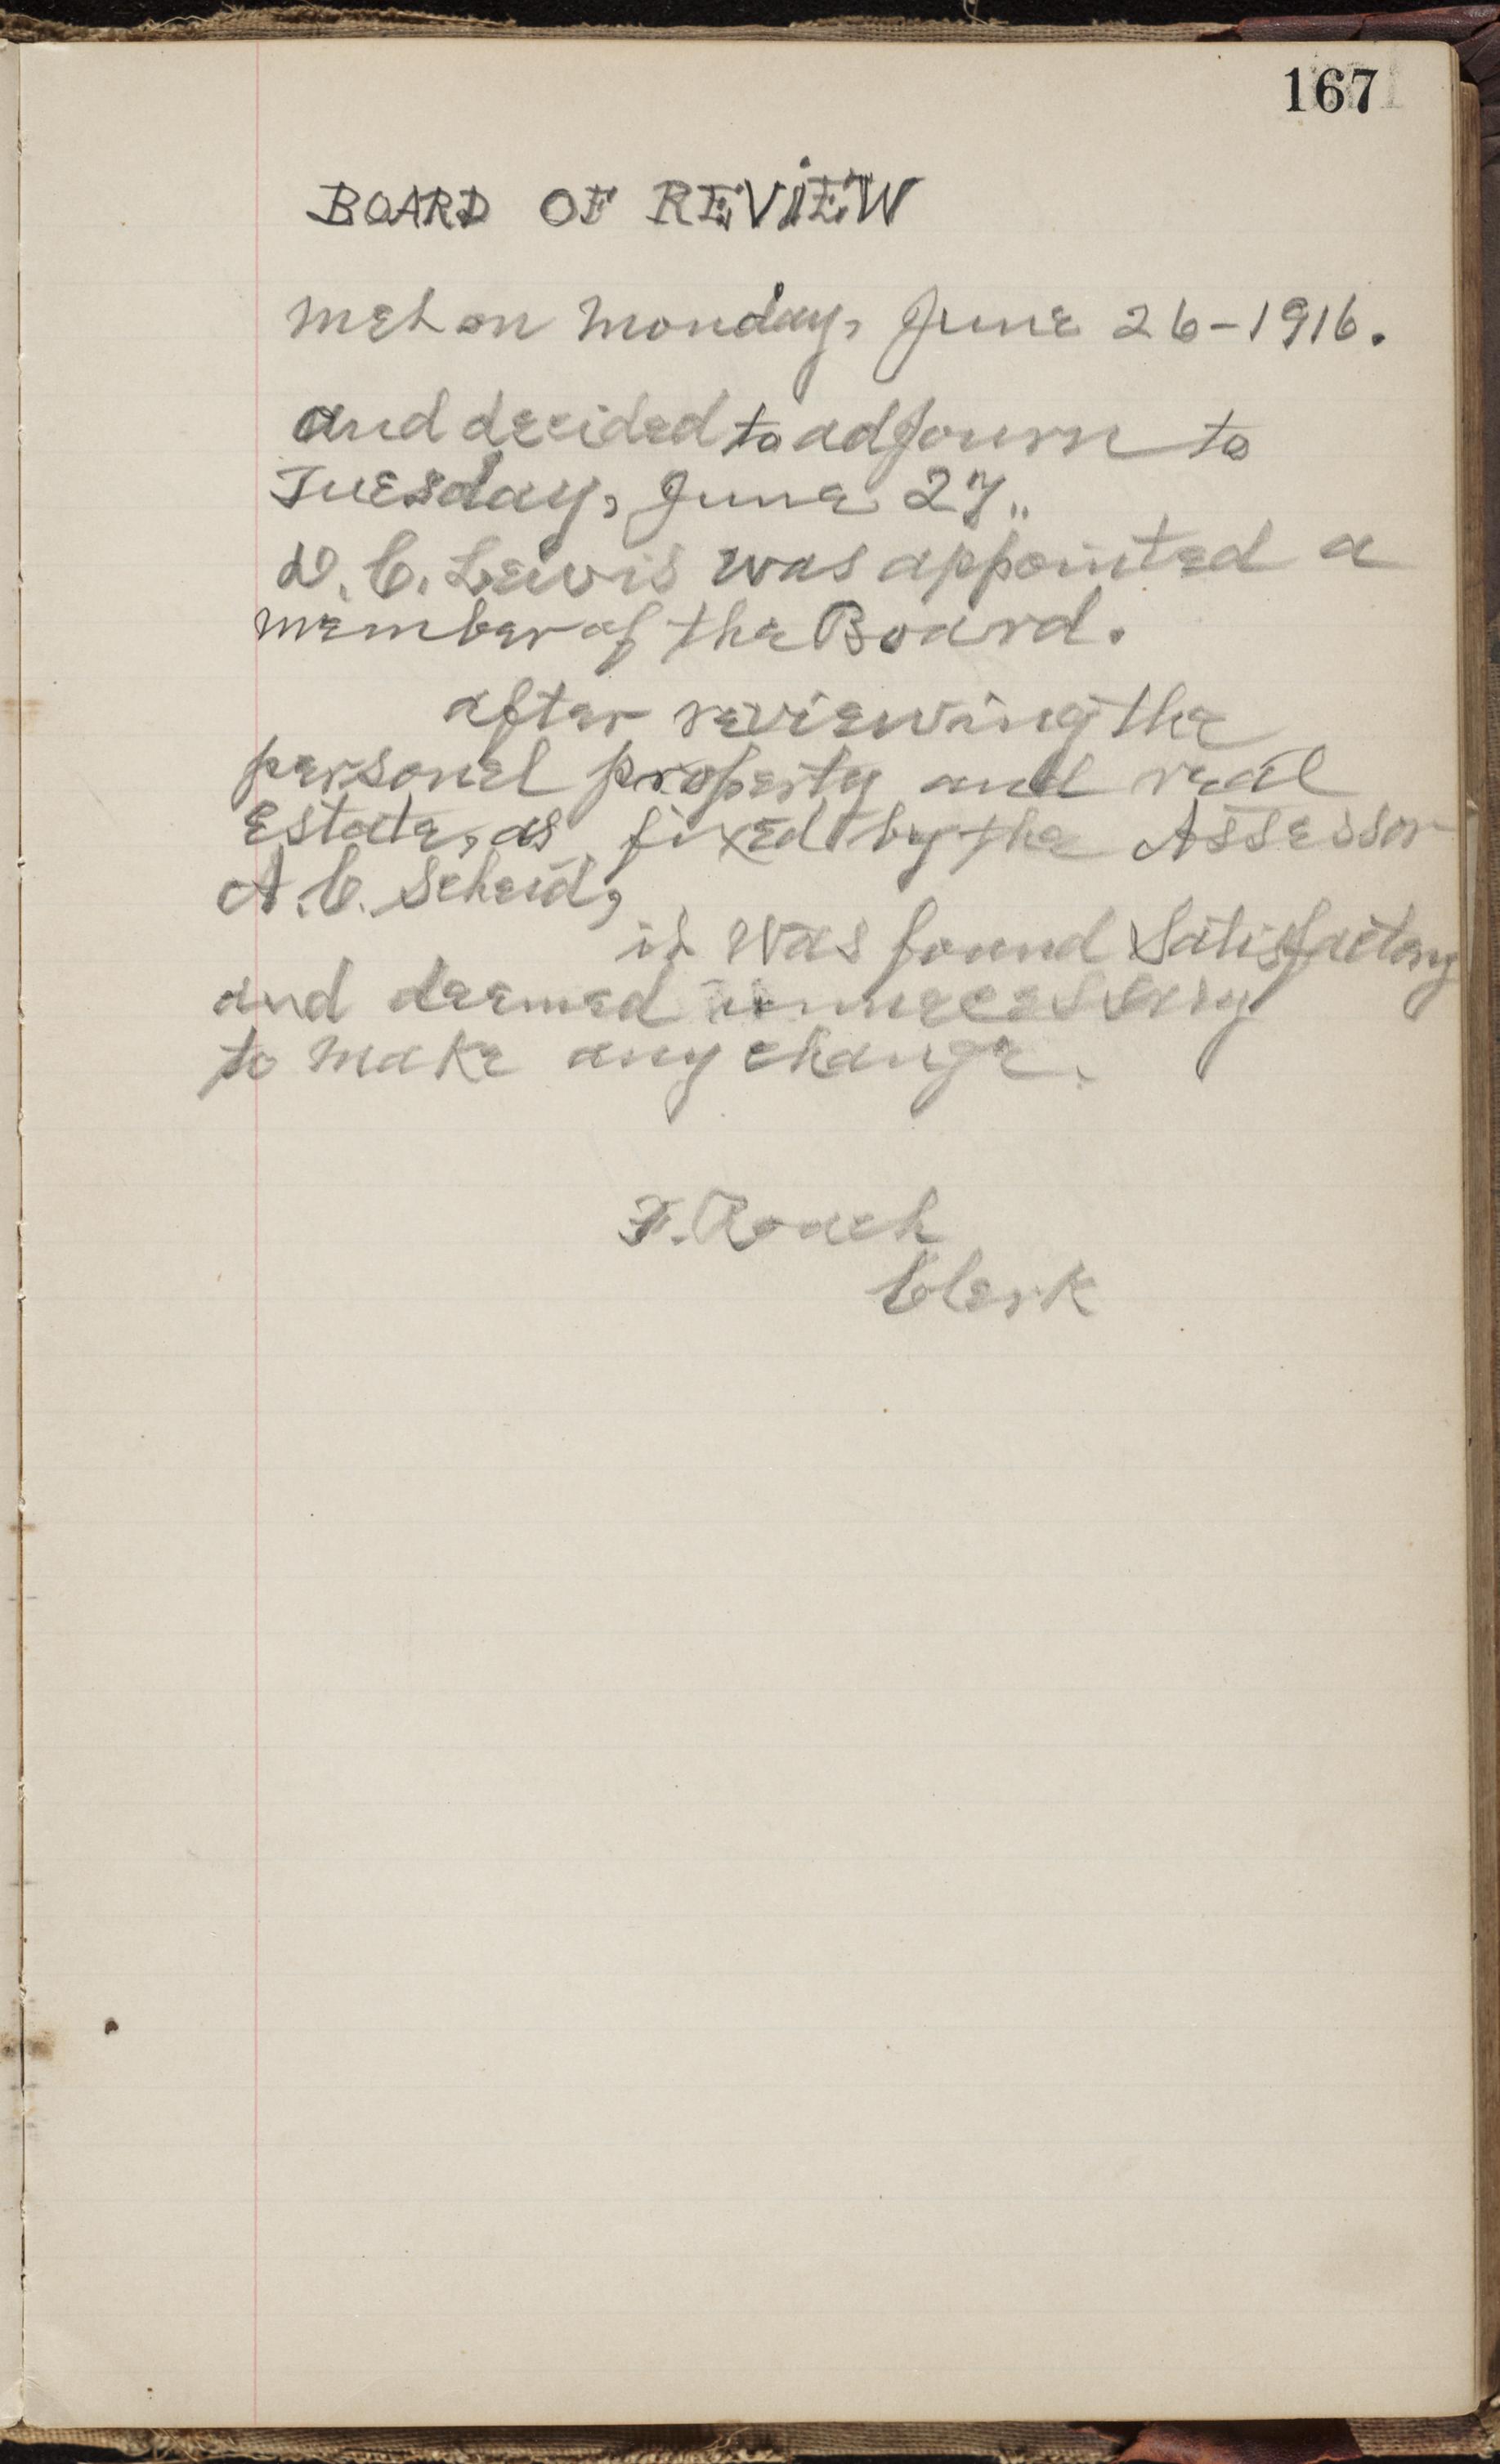 167
BOARD OF REVIEW
Met on Monday, June 26-1916.
and decided to adjourn to
Tuesday, June 27„
D. C. Lewis was appointed a
member of the Board.
after reviewing the
personel property and real
Estate, as fixed by the Assessor
A. C. Scheid,
it was found Satisfactory
and deemed unnecessary
to make any change.
F. Roach
Clerk